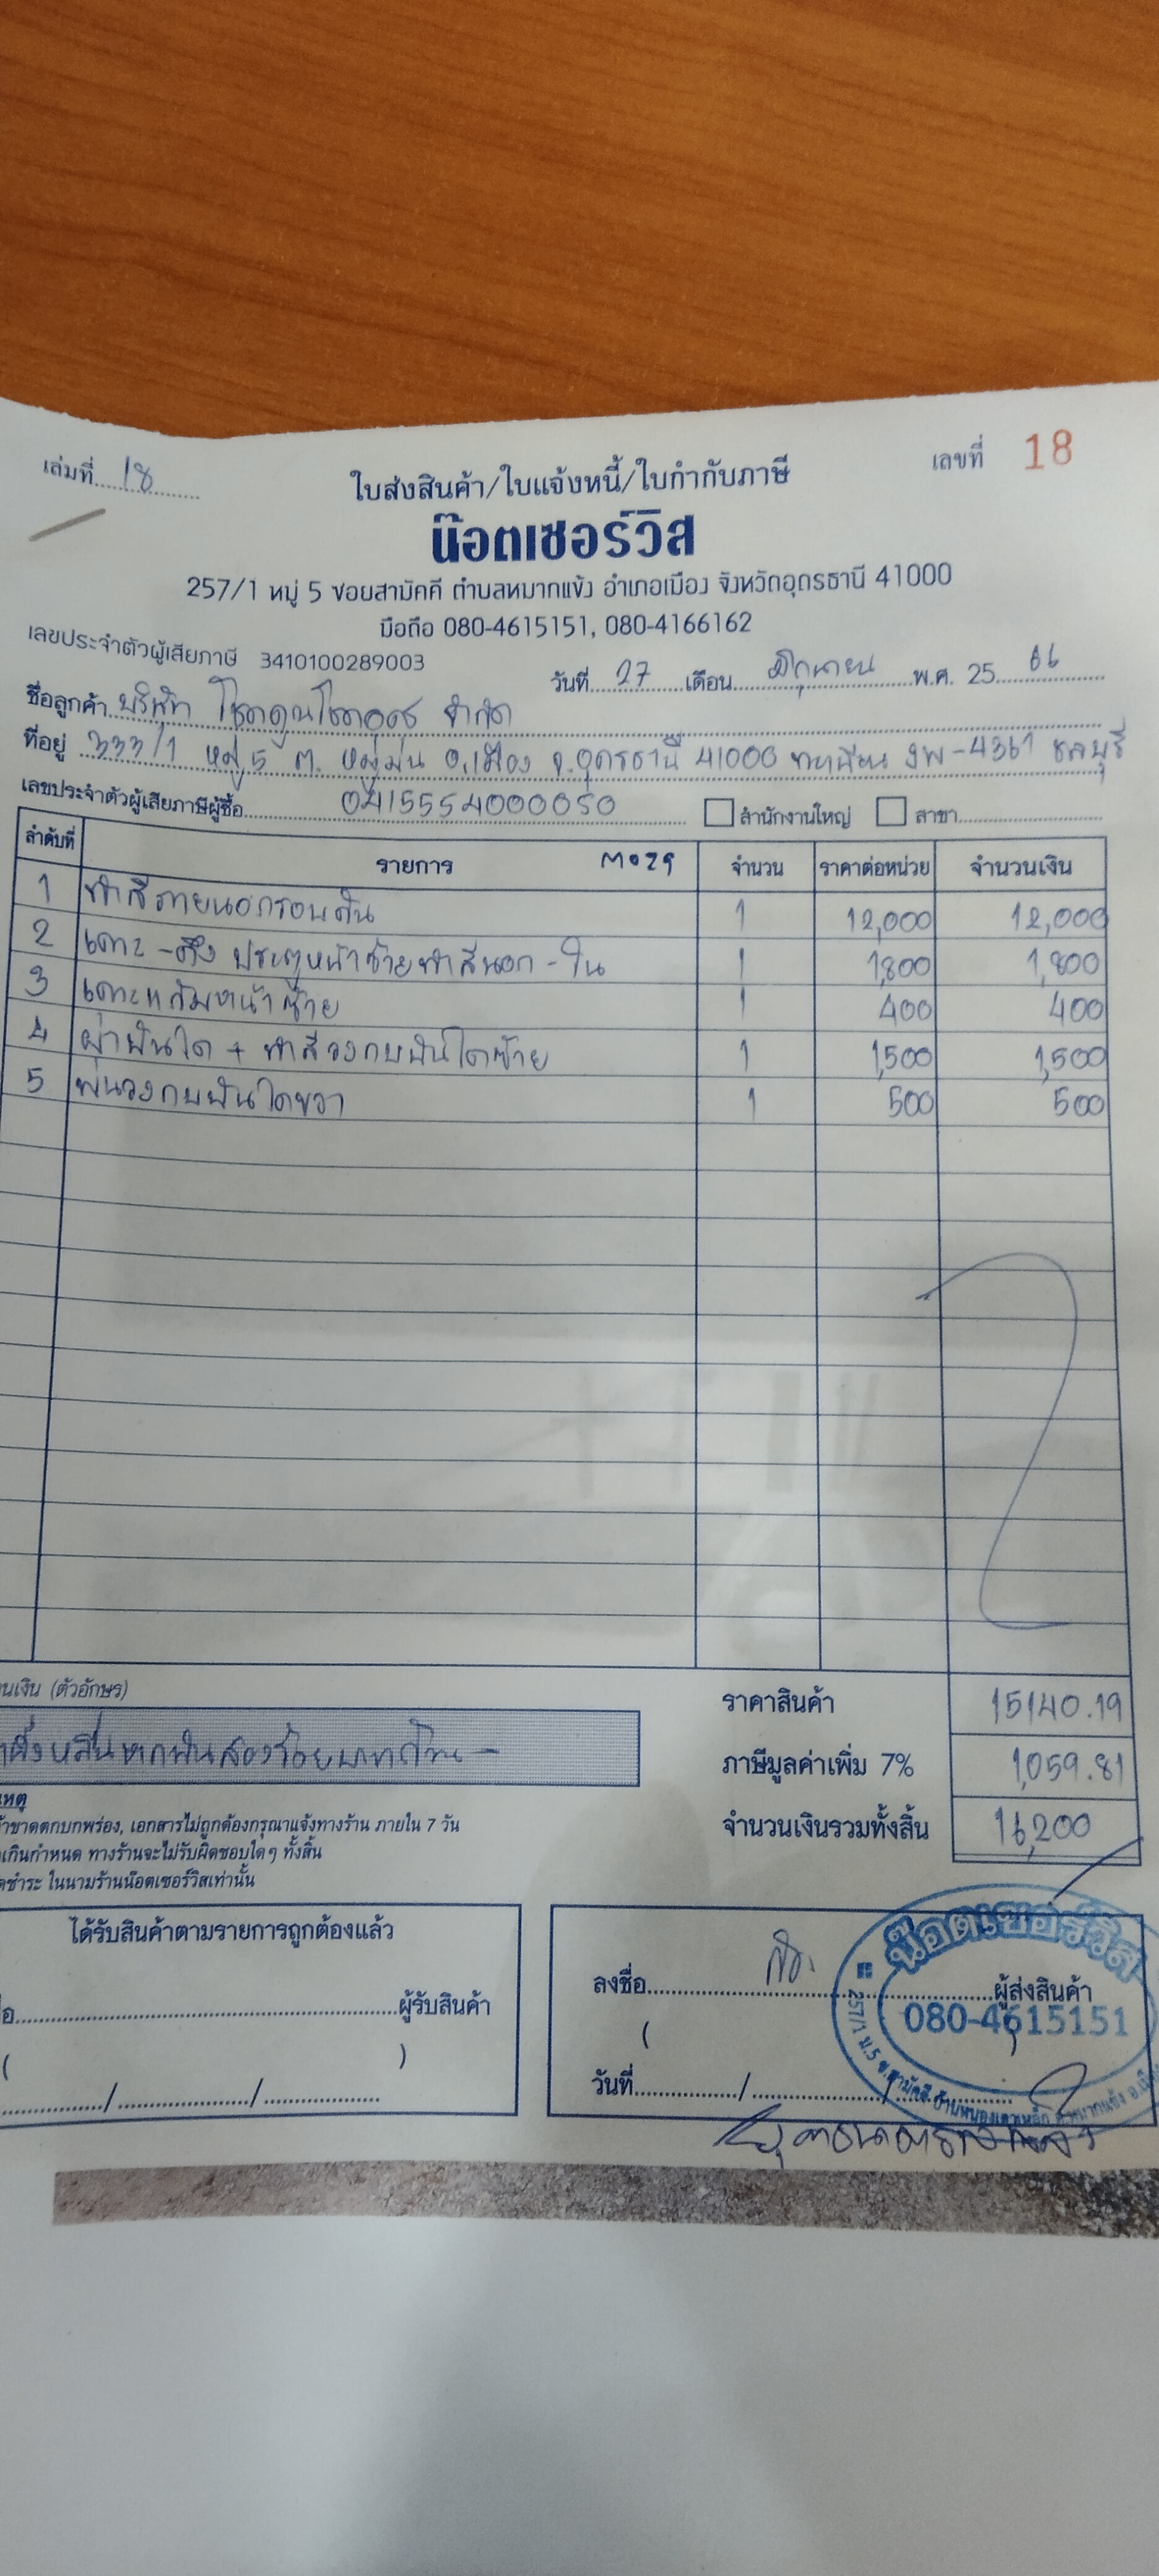 เล่มที่ 18
เลขที่ 18
ใบส่งสินค้า/ใบแจ้งหนี้/ใบกำกับภาษี
น๊อตเซอร์วิส
257/1 หมู่ 5 ซอยสามัคคี ตำบลหมากแข้ง อำเภอเมือง จังหวัดอุดรธานี 41000
มือถือ 080-4615151, 080-4166162
เลขประจำตัวผู้เสียภาษี 3410100289003
วันที่ 27 เดือน มิถุนายน พ.ศ. 25 66
ชื่อลูกค้า บริษัท โชคคูณโชคออโต้ จำกัด
ที่อยู่ 333/1 หมู่ 5 ต. หมูม่น อ.เมือง จ.อุดรธานี 41000 ทะเบียน งพ-4361 ชลบุรี
เลขประจำตัวผู้เสียภาษีผู้ซื้อ 0415554000050 สำนักงานใหญ่ สาขา
ลำดับที่ รายการ M029 จำนวน ราคาต่อหน่วย จำนวนเงิน
1 ทำสีภายนอกรอบคัน 1 12,000 12,000
2 เคาะ-ดึง ประตูหน้าซ้ายทำสีนอก-ใน 1 1,800 1,800
3 เคาะแก้มหน้าซ้าย 1 400 400
4 ผ่าบันได + ทำสีวงกบบันไดซ้าย 1 1,500 1,500
5 พ่นวงกบบันไดขวา 1 500 500
นเงิน (ตัวอักษร)
หนึ่งหมื่นหกพันสองร้อยบาทถ้วน-
ราคาสินค้า 15140.19
ภาษีมูลค่าเพิ่ม 7% 1,059.81
จำนวนเงินรวมทั้งสิ้น 16,200
เหตุ
้าขาดตกบกพร่อง, เอกสารไม่ถูกต้องกรุณาแจ้งทางร้าน ภายใน 7 วัน
เกินกำหนด ทางร้านจะไม่รับผิดชอบใดๆ ทั้งสิ้น
ชำระ ในนามร้านน๊อตเซอร์วิสเท่านั้น
ได้รับสินค้าตามรายการถูกต้องแล้ว
ผู้รับสินค้า
( )
/ /
ลงชื่อ ผู้ส่งสินค้า
( )
วันที่ / /
น๊อตเซอร์วิส
080-4615151
257/1 ม.5 ซ.สามัคคี-บ้านหนองเตาเหล็ก ต.หมากแข้ง อ.เมือง